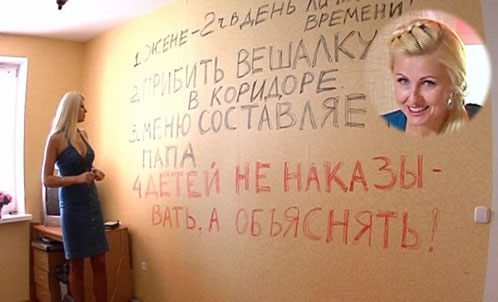 1. ЖЕНЕ - 2 Ч В ДЕНЬ
ВРЕМЕНИ!
2. ПРИБИТЬ ВЕШАЛКУ
В КОРИДОРЕ.
3. МЕНЮ СОСТАВЛЯЕ
ПАПА
4. ДЕТЕЙ НЕ НАКАЗЫ-
ВАТЬ, А ОБЪЯСНЯТЬ!